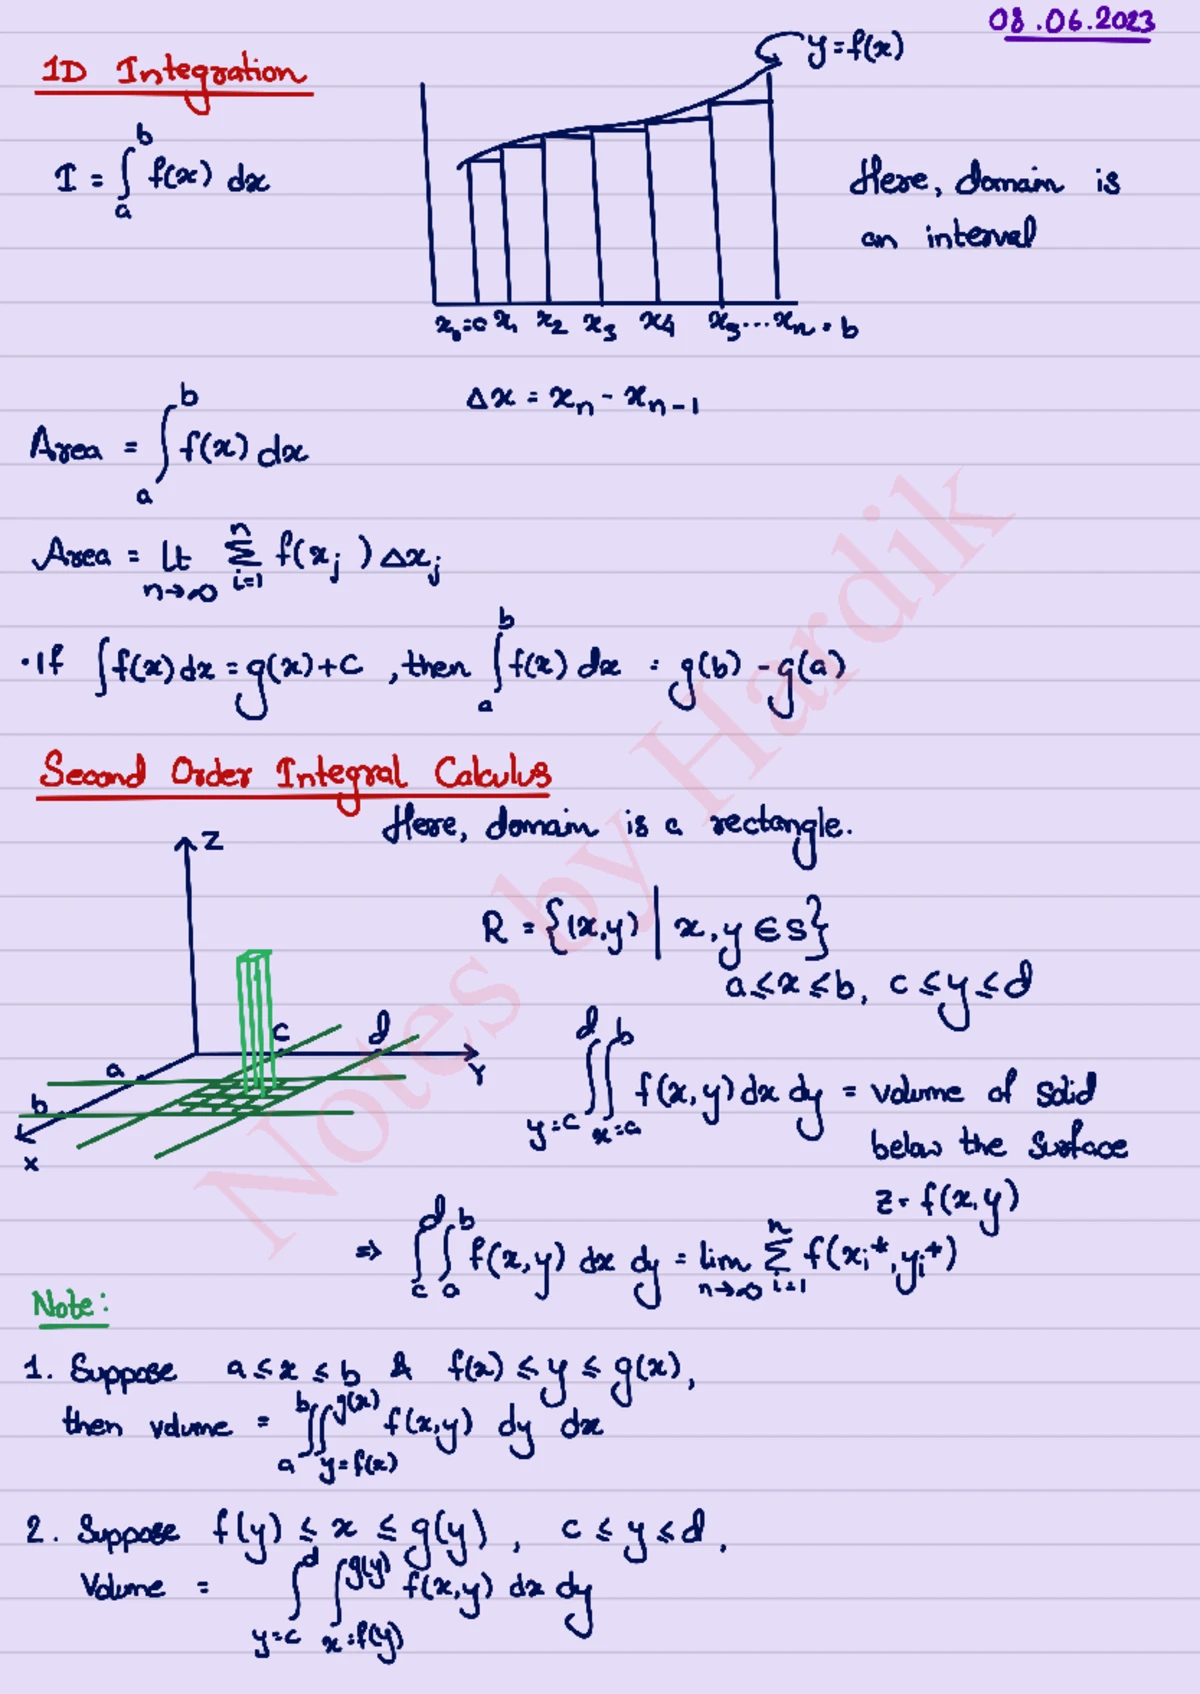 08.06.2023
1D Integration
y = f(x)
I = ∫_a^b f(x) dx
Here, domain is
an interval
x₁ x₂ x₃ x₄ x₅ ... xₙ = b
Δx = xₙ - xₙ₋₁
Area = ∫_a^b f(x) dx
Area = lt_{n→∞} Σ_{i=1}^n f(x_j) Δx_j
• If ∫f(x) dx = g(x) + C, then ∫_a^b f(x) dx = g(b) - g(a)
Second Order Integral Calculus
Here, domain is a rectangle.
Z
R = {(x,y) | x,y ∈ S}
a ≤ x ≤ b, c ≤ y ≤ d
c d
a
Y
b
x
∫_{y=c}^d ∫_{x=a}^b f(x,y) dx dy = volume of solid
below the surface
z = f(x,y)
⇒ ∫_c^d ∫_a^b f(x,y) dx dy = lim_{n→∞} Σ_{i=1}^n f(x_i*, y_i*)
Note:
1. Suppose a ≤ x ≤ b & f(x) ≤ y ≤ g(x),
then volume = ∫_a^b ∫_{y=f(x)}^{g(x)} f(x,y) dy dx
2. Suppose f(y) ≤ x ≤ g(y), c ≤ y ≤ d,
Volume = ∫_{y=c}^d ∫_{x=f(y)}^{g(y)} f(x,y) dx dy
Notes by Hardik